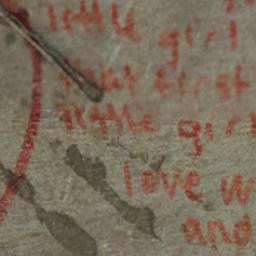 little girl
that first
little girl
love w
and